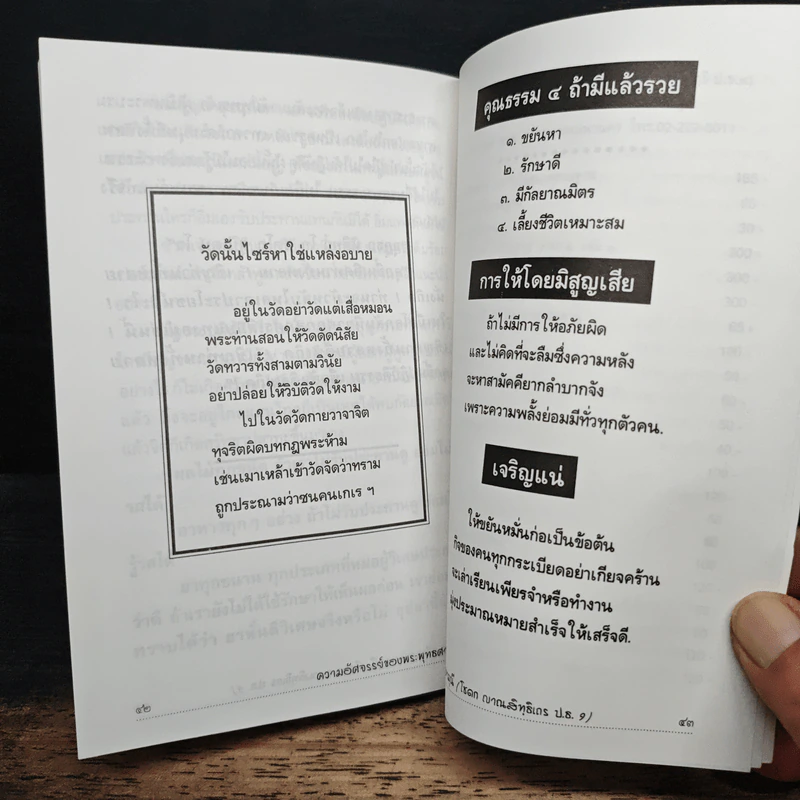 วัดนั้นไซร้หาใช่แหล่งอบาย
อยู่ในวัดอย่าวัดแต่เสื่อหมอน
พระท่านสอนให้วัดดัดนิสัย
วัดทวารทั้งสามตามวินัย
อย่าปล่อยให้วิบัติวัดให้งาม
ไปในวัดวัดกายวาจาจิต
ทุจริตผิดบทกฎพระห้าม
เช่นเมาเหล้าเข้าวัดจัดว่าทราม
ถูกประณามว่าซนคนเกเร ฯ
ความอัศจรรย์ของพระพุทธ
๔๒
คุณธรรม ๔ ถ้ามีแล้วรวย
๑. ขยันหา
๒. รักษาดี
๓. มีกัลยาณมิตร
๔. เลี้ยงชีวิตเหมาะสม
การให้โดยมิสูญเสีย
ถ้าไม่มีการให้อภัยผิด
และไม่คิดที่จะลืมซึ่งความหลัง
จะหาสามัคคียากลำบากจัง
เพราะความพลั้งย่อมมีทั่วทุกตัวคน.
เจริญแน่
ให้ขยันหมั่นก่อเป็นข้อต้น
กิจของคนทุกกระเบียดอย่าเกียจคร้าน
จะเล่าเรียนเพียรจำหรือทำงาน
มุ่งประมาณหมายสำเร็จให้เสร็จดี.
(โชดก ญาณสิทฺธิเถร ป.ธ. ๙)
๔๓